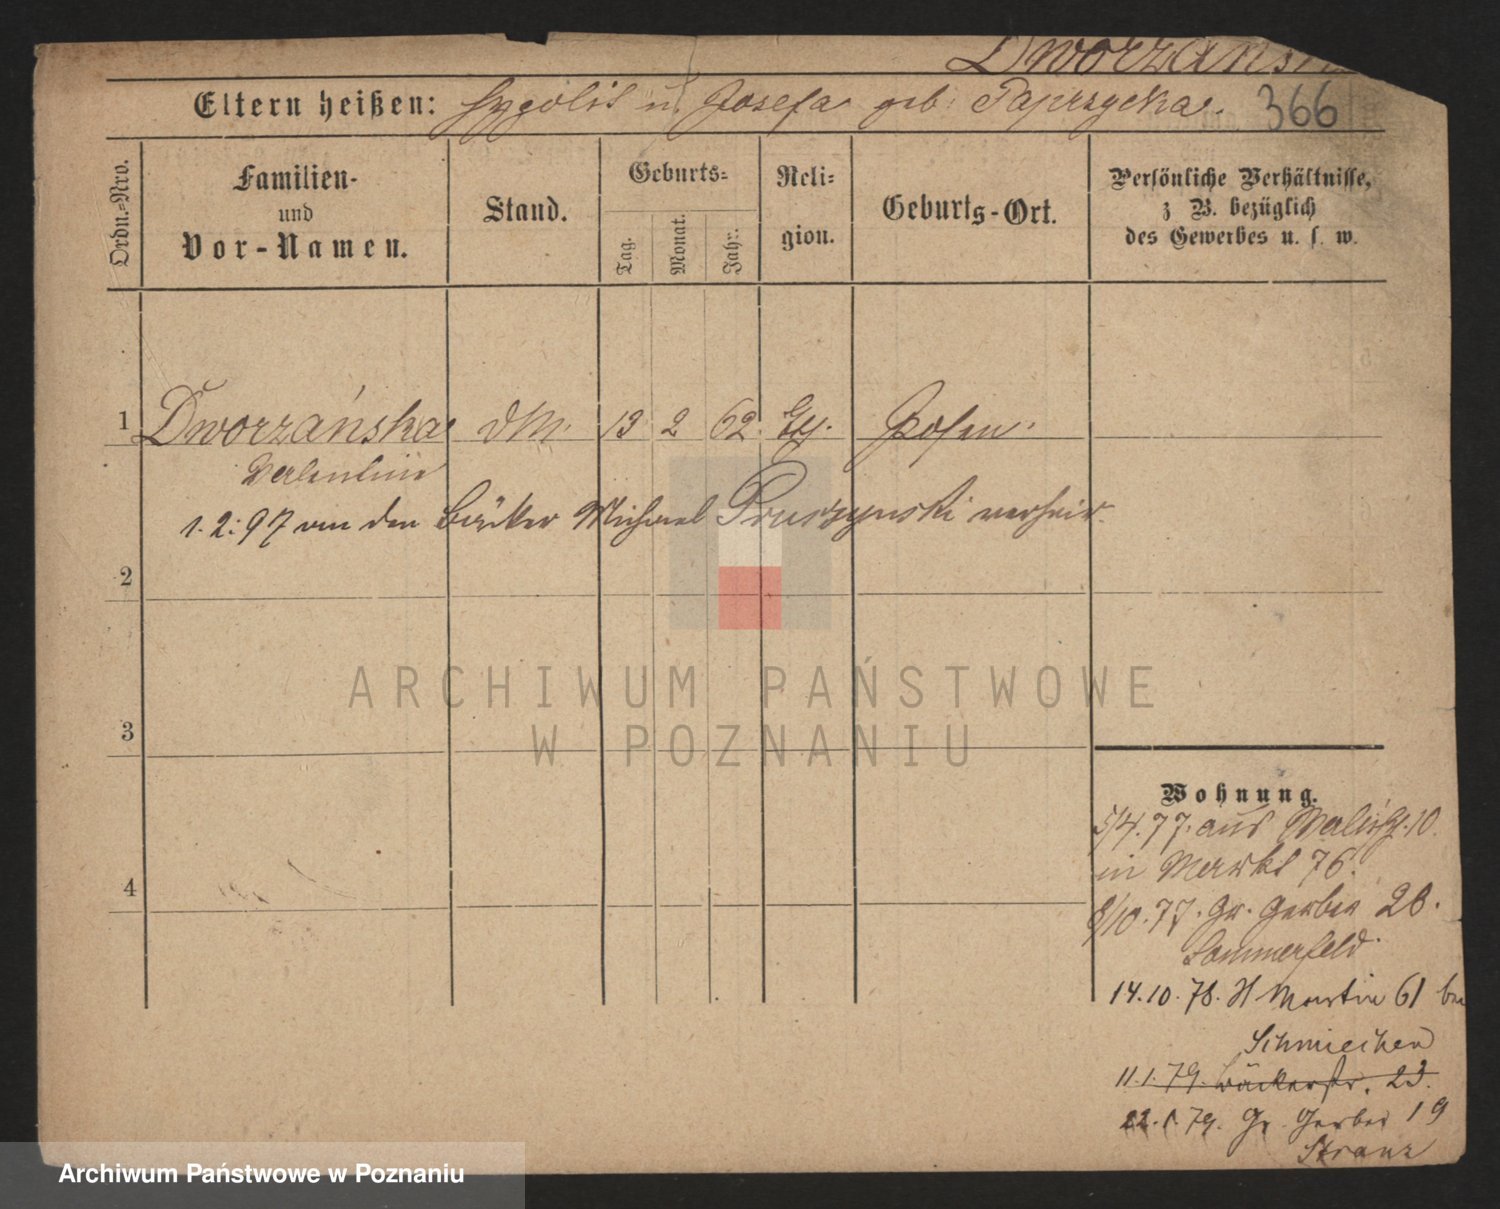 Dworzańsk
Eltern heißen: Hypolit u. Josefa geb: Paprzycka 366
Ordn.-Nro.
Familien-
und
Vor-Namen.
Stand.
Geburts-
Tag.
Monat.
Jahr.
Reli-
gion.
Geburts-Ort.
Persönliche Verhältnisse,
z B. bezüglich
des Gewerbes u. s. w.
1 Dworzańska dM. 13 2 62. Posen.
Valentine
1.2.97 an den Bäcker Michael Pruszynski verheir.
2
3
4
ARCHIWUM PAŃSTWOWE
W POZNANIU
Wohnung.
5/4.77. aus 10.
in Markt 76.
8/10.77. Gr. Gerber 26.
Sommerfeld.
14.10.78. St Martin 61 bei
Schmiechen
11.1.79. Bäckerstr. 23.
22.1.79. Gr. Gerber 19
Stranz
Archiwum Państwowe w Poznaniu